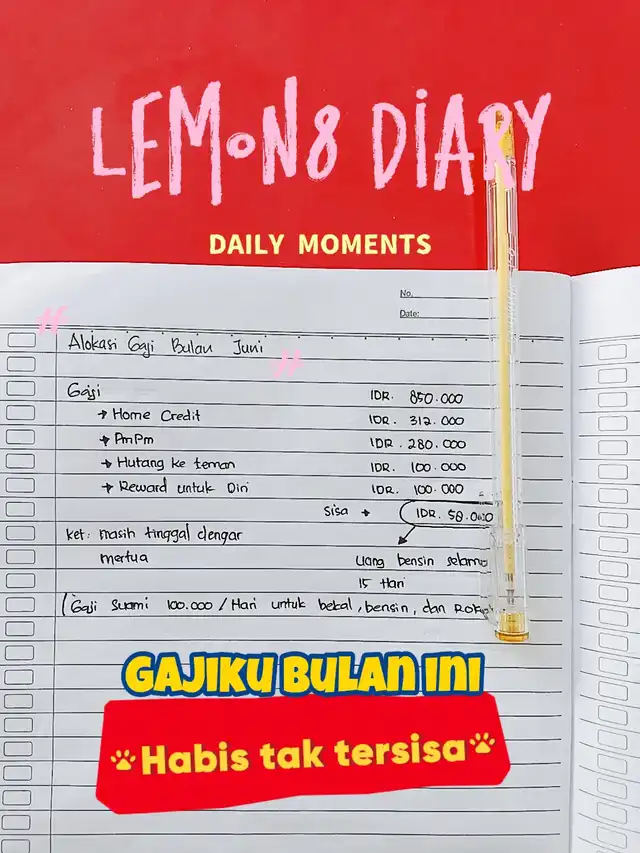 LEMON8 DIARY
DAILY MOMENTS
No.
Date:
Alokasi Gaji Bulan Juni
Gaji IDR. 850.000
→ Home Credit IDR. 312.000
→ PmPm IDR. 280.000
→ Hutang ke teman IDR. 100.000
→ Reward untuk Diri IDR. 100.000
Sisa → IDR. 58.000
ket: masih tinggal dengar
mertua
uang bensin selama
15 Hari
(Gaji Suami 100.000 / Hari untuk bekal, bensin, dan Rokok
GAJIKU BULAN INI
Habis tak tersisa